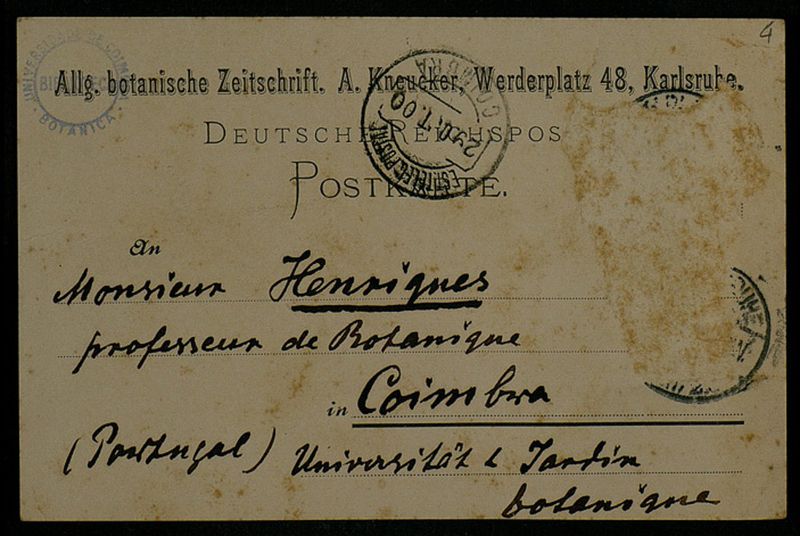 4
UNIVERSIDADE DE COIMBRA
BOTANICA
Allg. botanische Zeitschrift. A. Kneucker, Werderplatz 48, Karlsruhe.
COIMBRA
29 OUT. 00
DEUTSCHE REICHSPOS
POSTKARTE.
An
Monsieur Henriques
professeur de Botanique
in Coimbra
(Portugal) Universität & Jardin
botanique